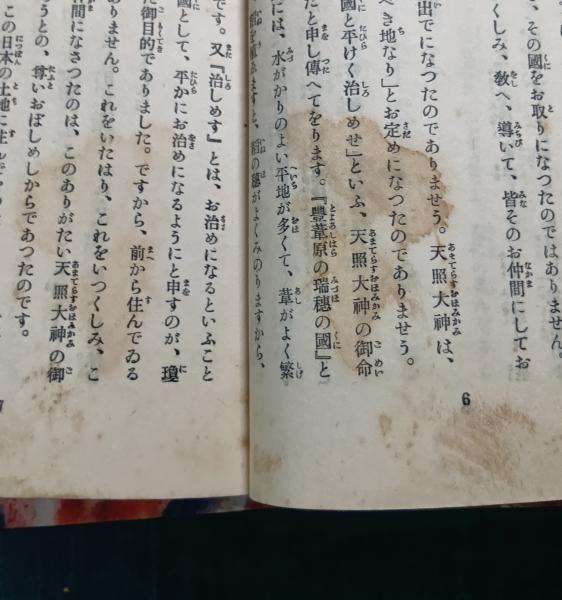 、その國をお取りになつたのではありません。
くしみ、敎へ、導いて、皆そのお仲間にしてお
出でになつたのでありませう。天照大神は、
べき地なり」とお定めになつたのでありませう。
國と平けく治しめせ」といふ、天照大神の御命
だと申し傳へてをります。『豐葦原の瑞穗の國』と
には、水がかりのよい平地が多くて、葦がよく繁
の穗がよくみのりますから、
6
です。又『治しめす』とは、お治めになるといふこと
國として、平かにお治めになるようにと申すのが、瓊
た御目的でありました。ですから、前から住んでゐる
ありません。これをいたはり、これをいつくしみ、こ
仲間になさつたのは、このありがたい天照大神の御
うとの、尊いおぼしめしからであつたのです。
この日本の土地に住んで